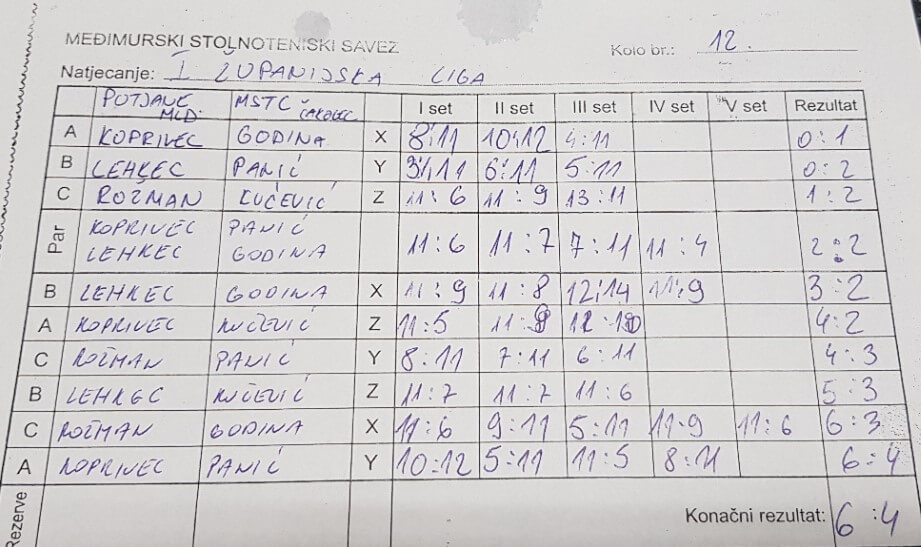 MEĐIMURSKI STOLNOTENISKI SAVEZ
Kolo br.: 12.
Natjecanje: I ŽUPANIJSKA LIGA
POTJANE MLD. MSTC ČAKOVEC I set II set III set IV set V set Rezultat
A KOPRIVEC GODINA X 8:11 10:12 4:11 0:1
B LEHKEC PANIĆ Y 3:11 6:11 5:11 0:2
C ROŽMAN KUČEVIĆ Z 11:6 11:9 13:11 1:2
Par KOPRIVEC PANIĆ
LEHKEC GODINA 11:6 11:7 7:11 11:4 2:2
B LEHKEC GODINA X 11:9 11:8 12:14 11:9 3:2
A KOPRIVEC KUČEVIĆ Z 11:5 11:8 12:10 4:2
C ROŽMAN PANIĆ Y 8:11 7:11 6:11 4:3
B LEHKEC KUČEVIĆ Z 11:7 11:7 11:6 5:3
C ROŽMAN GODINA X 11:6 9:11 5:11 11:9 11:6 6:3
A KOPRIVEC PANIĆ Y 10:12 5:11 11:5 8:11 6:4
Rezerve Konačni rezultat: 6:4